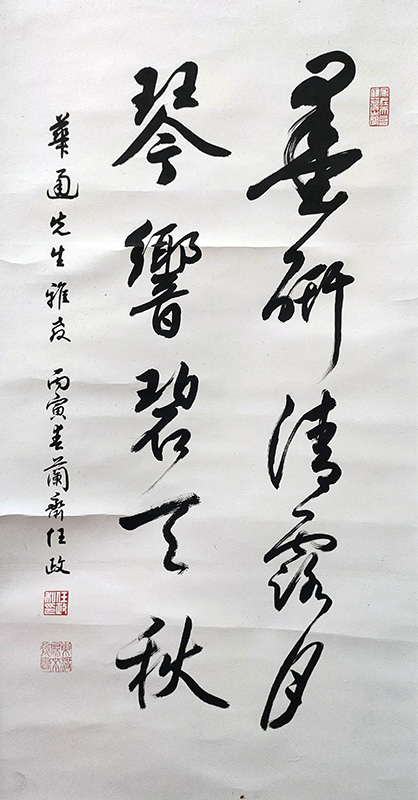 墨研清露月
琴響碧天秋
華通先生雅教 丙寅春蘭齋任政